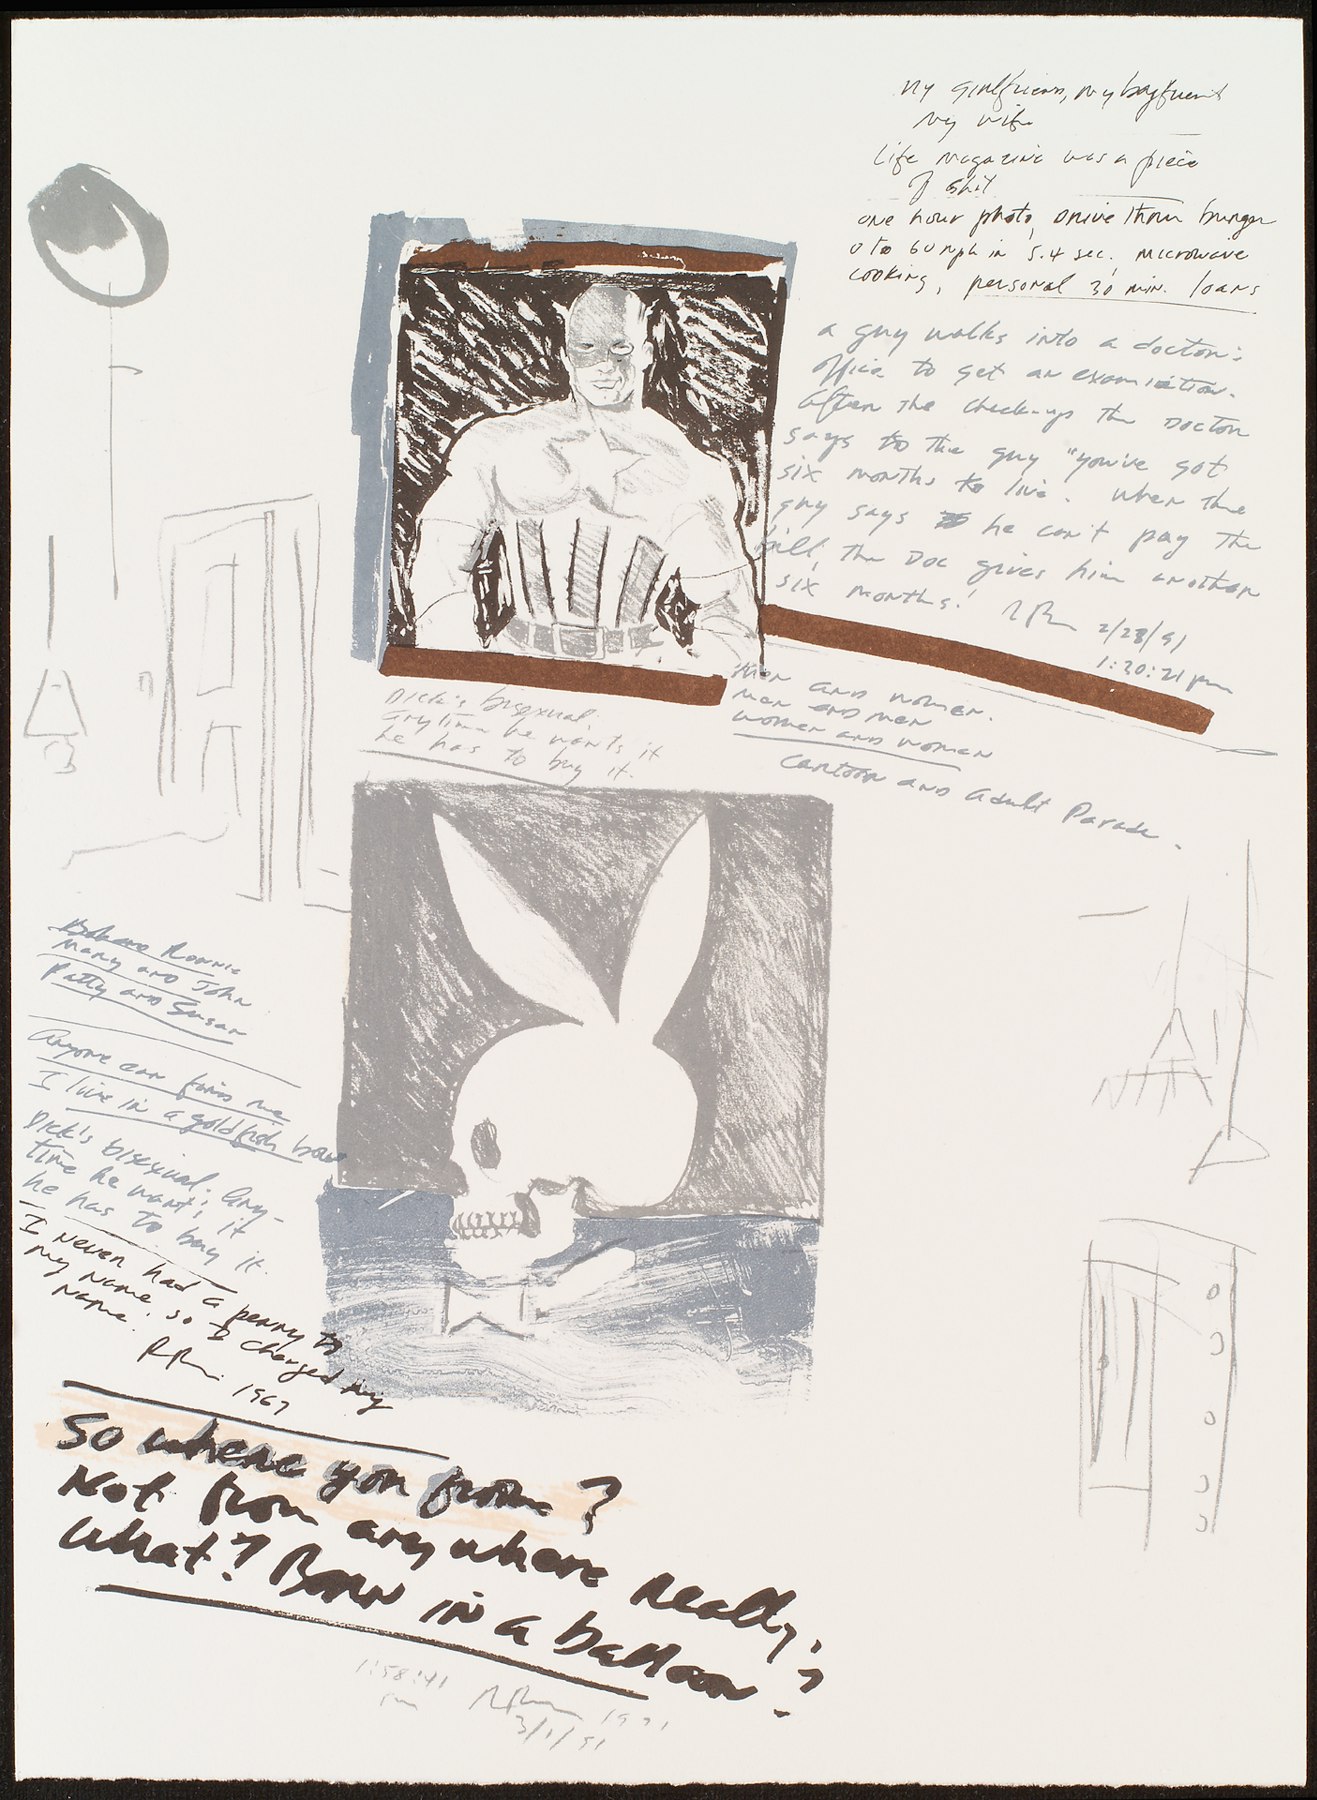 my girlfriend, my boyfriend
my wife
Life magazine was a piece
of shit
one hour photo, drive thru burger
0 to 60 mph in 5.4 sec, microwave
cooking, personal 30 min. loans
a guy walks into a doctor's
office to get an examination.
After the check-up the Doctor
says to the guy "you've got
six months to live. When the
guy says he can't pay the
bill, the Doc gives him another
six months."
2/28/91
1:20:21 pm
Men and women.
men and men
women and women
Cartoon and adult Parade.
Dick's bisexual.
anytime he wants it
he has to buy it.
Ronnie
Mary and John
Patty and Susan
Anyone can find me
I live in a goldfish bowl
Dick's bisexual. Any-
time he wants it
he has to buy it.
I never had a penny to
my name, so I changed my
name.
1967
So where you from?
Not from anywhere really.
What? Born in a balloon?
1:58:41
pm
1991
3/1/91